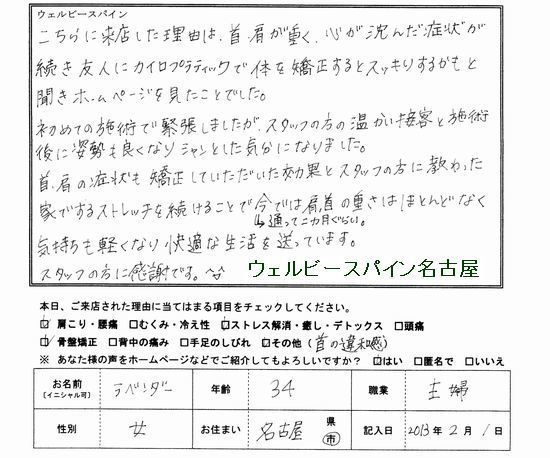 ウェルビースパイン
こちらに来店した理由は、首、肩が重く、心が沈んだ症状が
続き友人にカイロプラティックで体を矯正するとスッキリするかもと
聞きホームページを見たことでした。
初めての施術で緊張しましたが、スタッフの方の温かい接客と施術
後に姿勢も良くなりシャンとした気分になりました。
首、肩の症状も矯正していただいた効果とスタッフの方に教わった
家でするストレッチを続けることで今では肩首の重さはほとんどなく
↳通って二カ月ぐらい。
気持ちも軽くなり快適な生活を送っています。
スタッフの方に感謝です。^^
ウェルビースパイン名古屋
本日、ご来店された理由に当てはまる項目をチェックしてください。
☑ 肩こり・腰痛 □むくみ・冷え性 ☑ストレス解消・癒し・デトックス □頭痛
☑骨盤矯正 □背中の痛み □手足のしびれ □その他（首の違和感）
※ あなた様の声をホームページなどでご紹介してもよろしいですか？ ☑はい □匿名で □いいえ
お名前 [イニシャル可] ラベンダー 年齢 34 職業 主婦
性別 女 お住まい 名古屋 県 市 記入日 2013年 2月 1日